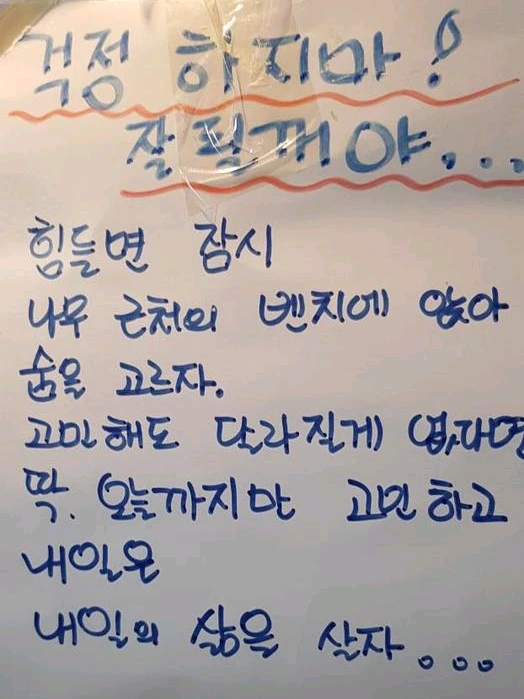 걱정 하지마!
잘 될꺼야...
힘들면 잠시
나무 근처의 벤치에 앉아
숨을 고르자.
고민해도 달라질게 없다면
딱. 오늘까지만 고민하고
내일은
내일의 삶을 살자...